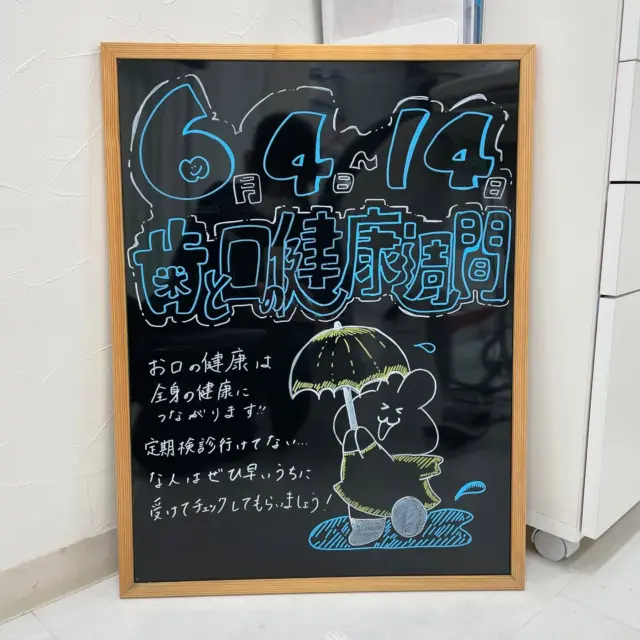 6月4日～14日
歯と口の健康週間
お口の健康は
全身の健康に
つながります!!
定期検診行けてない…
な人はぜひ早いうちに
受けてチェックしてもらいましょう!